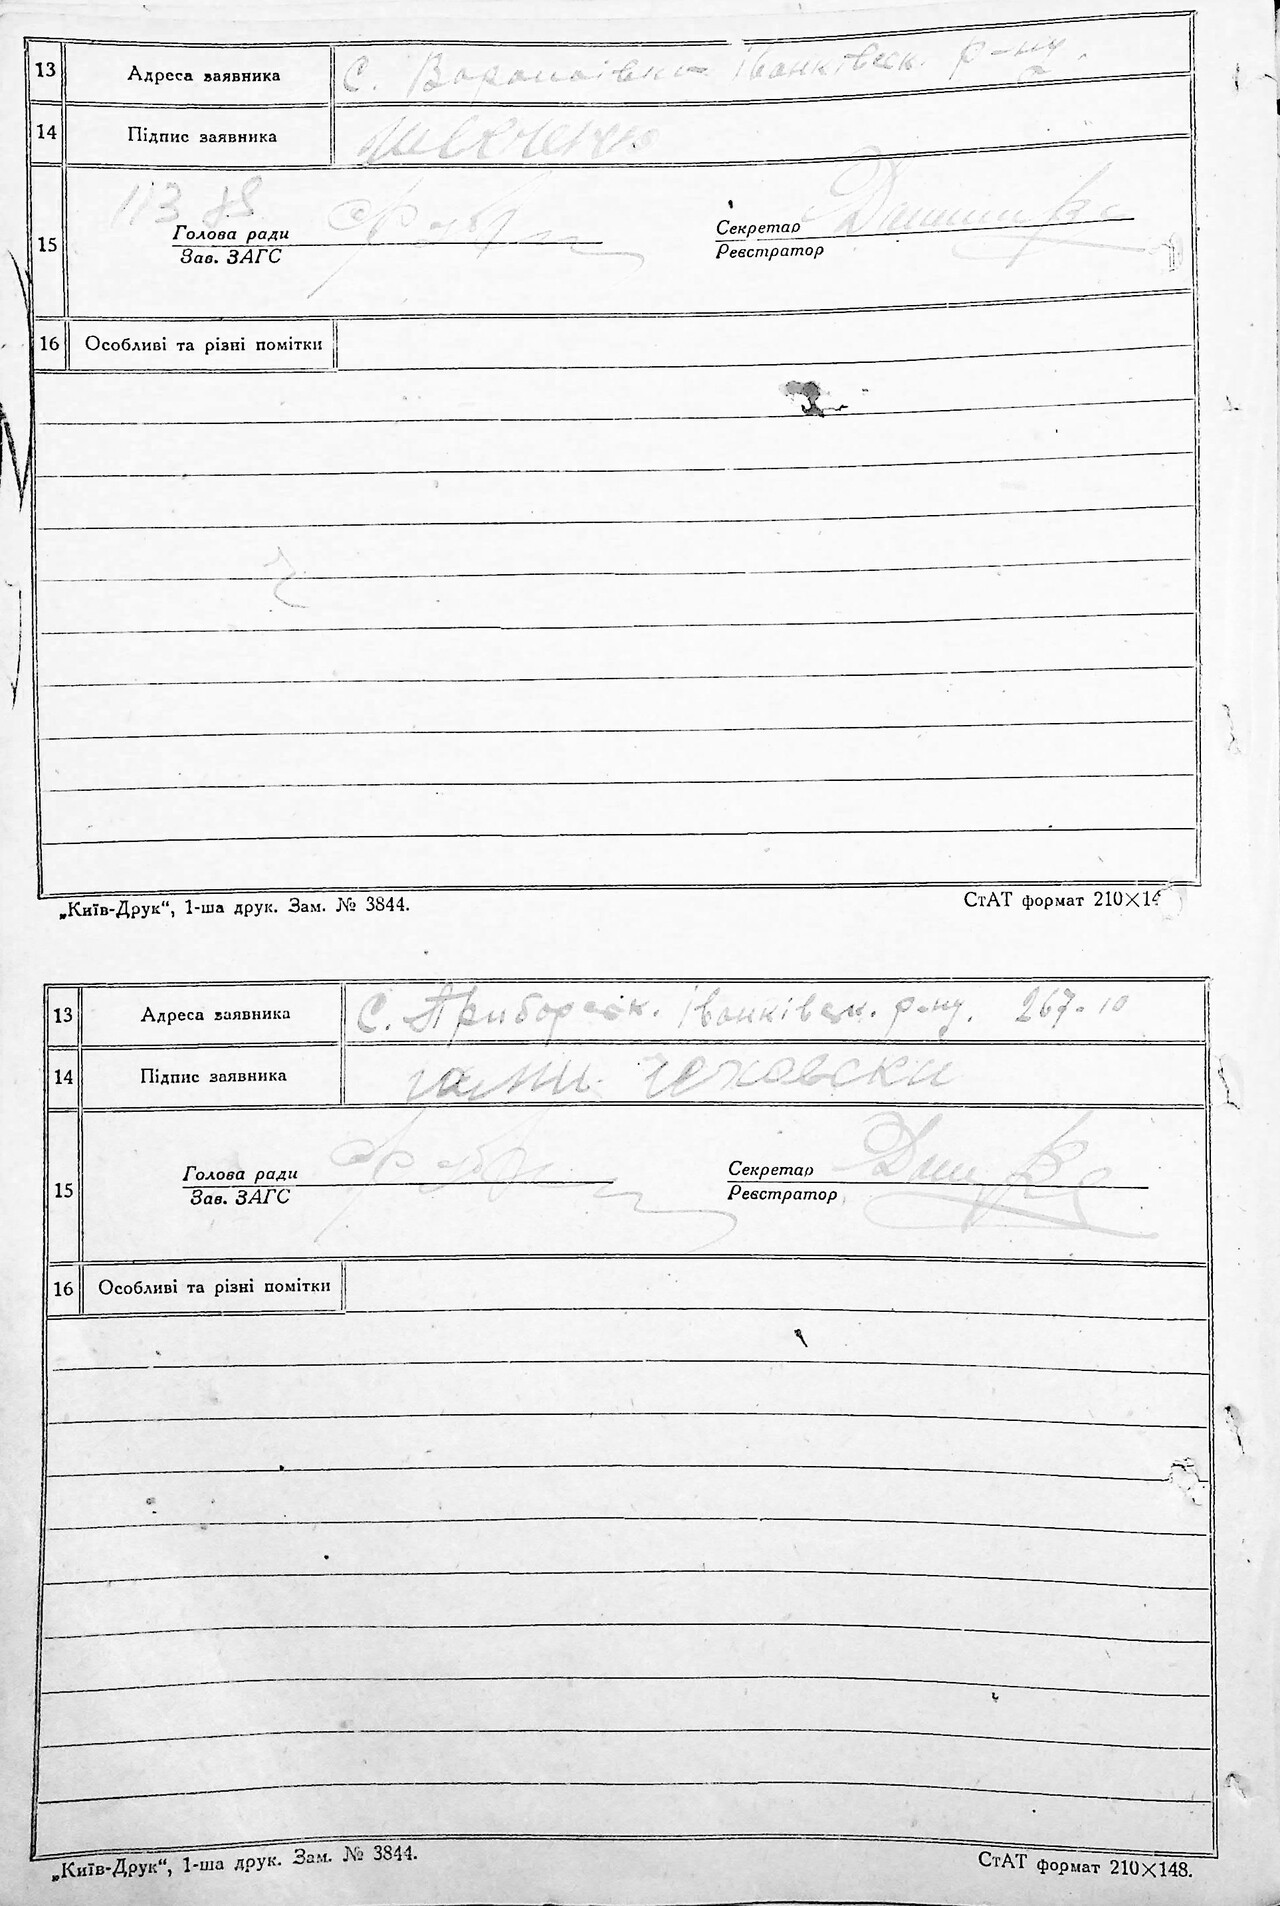 13 Адреса заявника с. Вороповівка Іванківськ. р-ну.
14 Підпис заявника Шевченко
113
Голова ради Секретар
15
Зав. ЗАГС Реєстратор
16 Особливі та різні помітки
„Київ-Друк“, 1-ша друк. Зам. № 3844. СтАТ формат 210×14
13 Адреса заявника с. Приборськ. Іванківськ. р-ну. 267-10
14 Підпис заявника
Голова ради Секретар
15
Зав. ЗАГС Реєстратор
16 Особливі та різні помітки
„Київ-Друк“, 1-ша друк. Зам. № 3844. СтАТ формат 210×148.